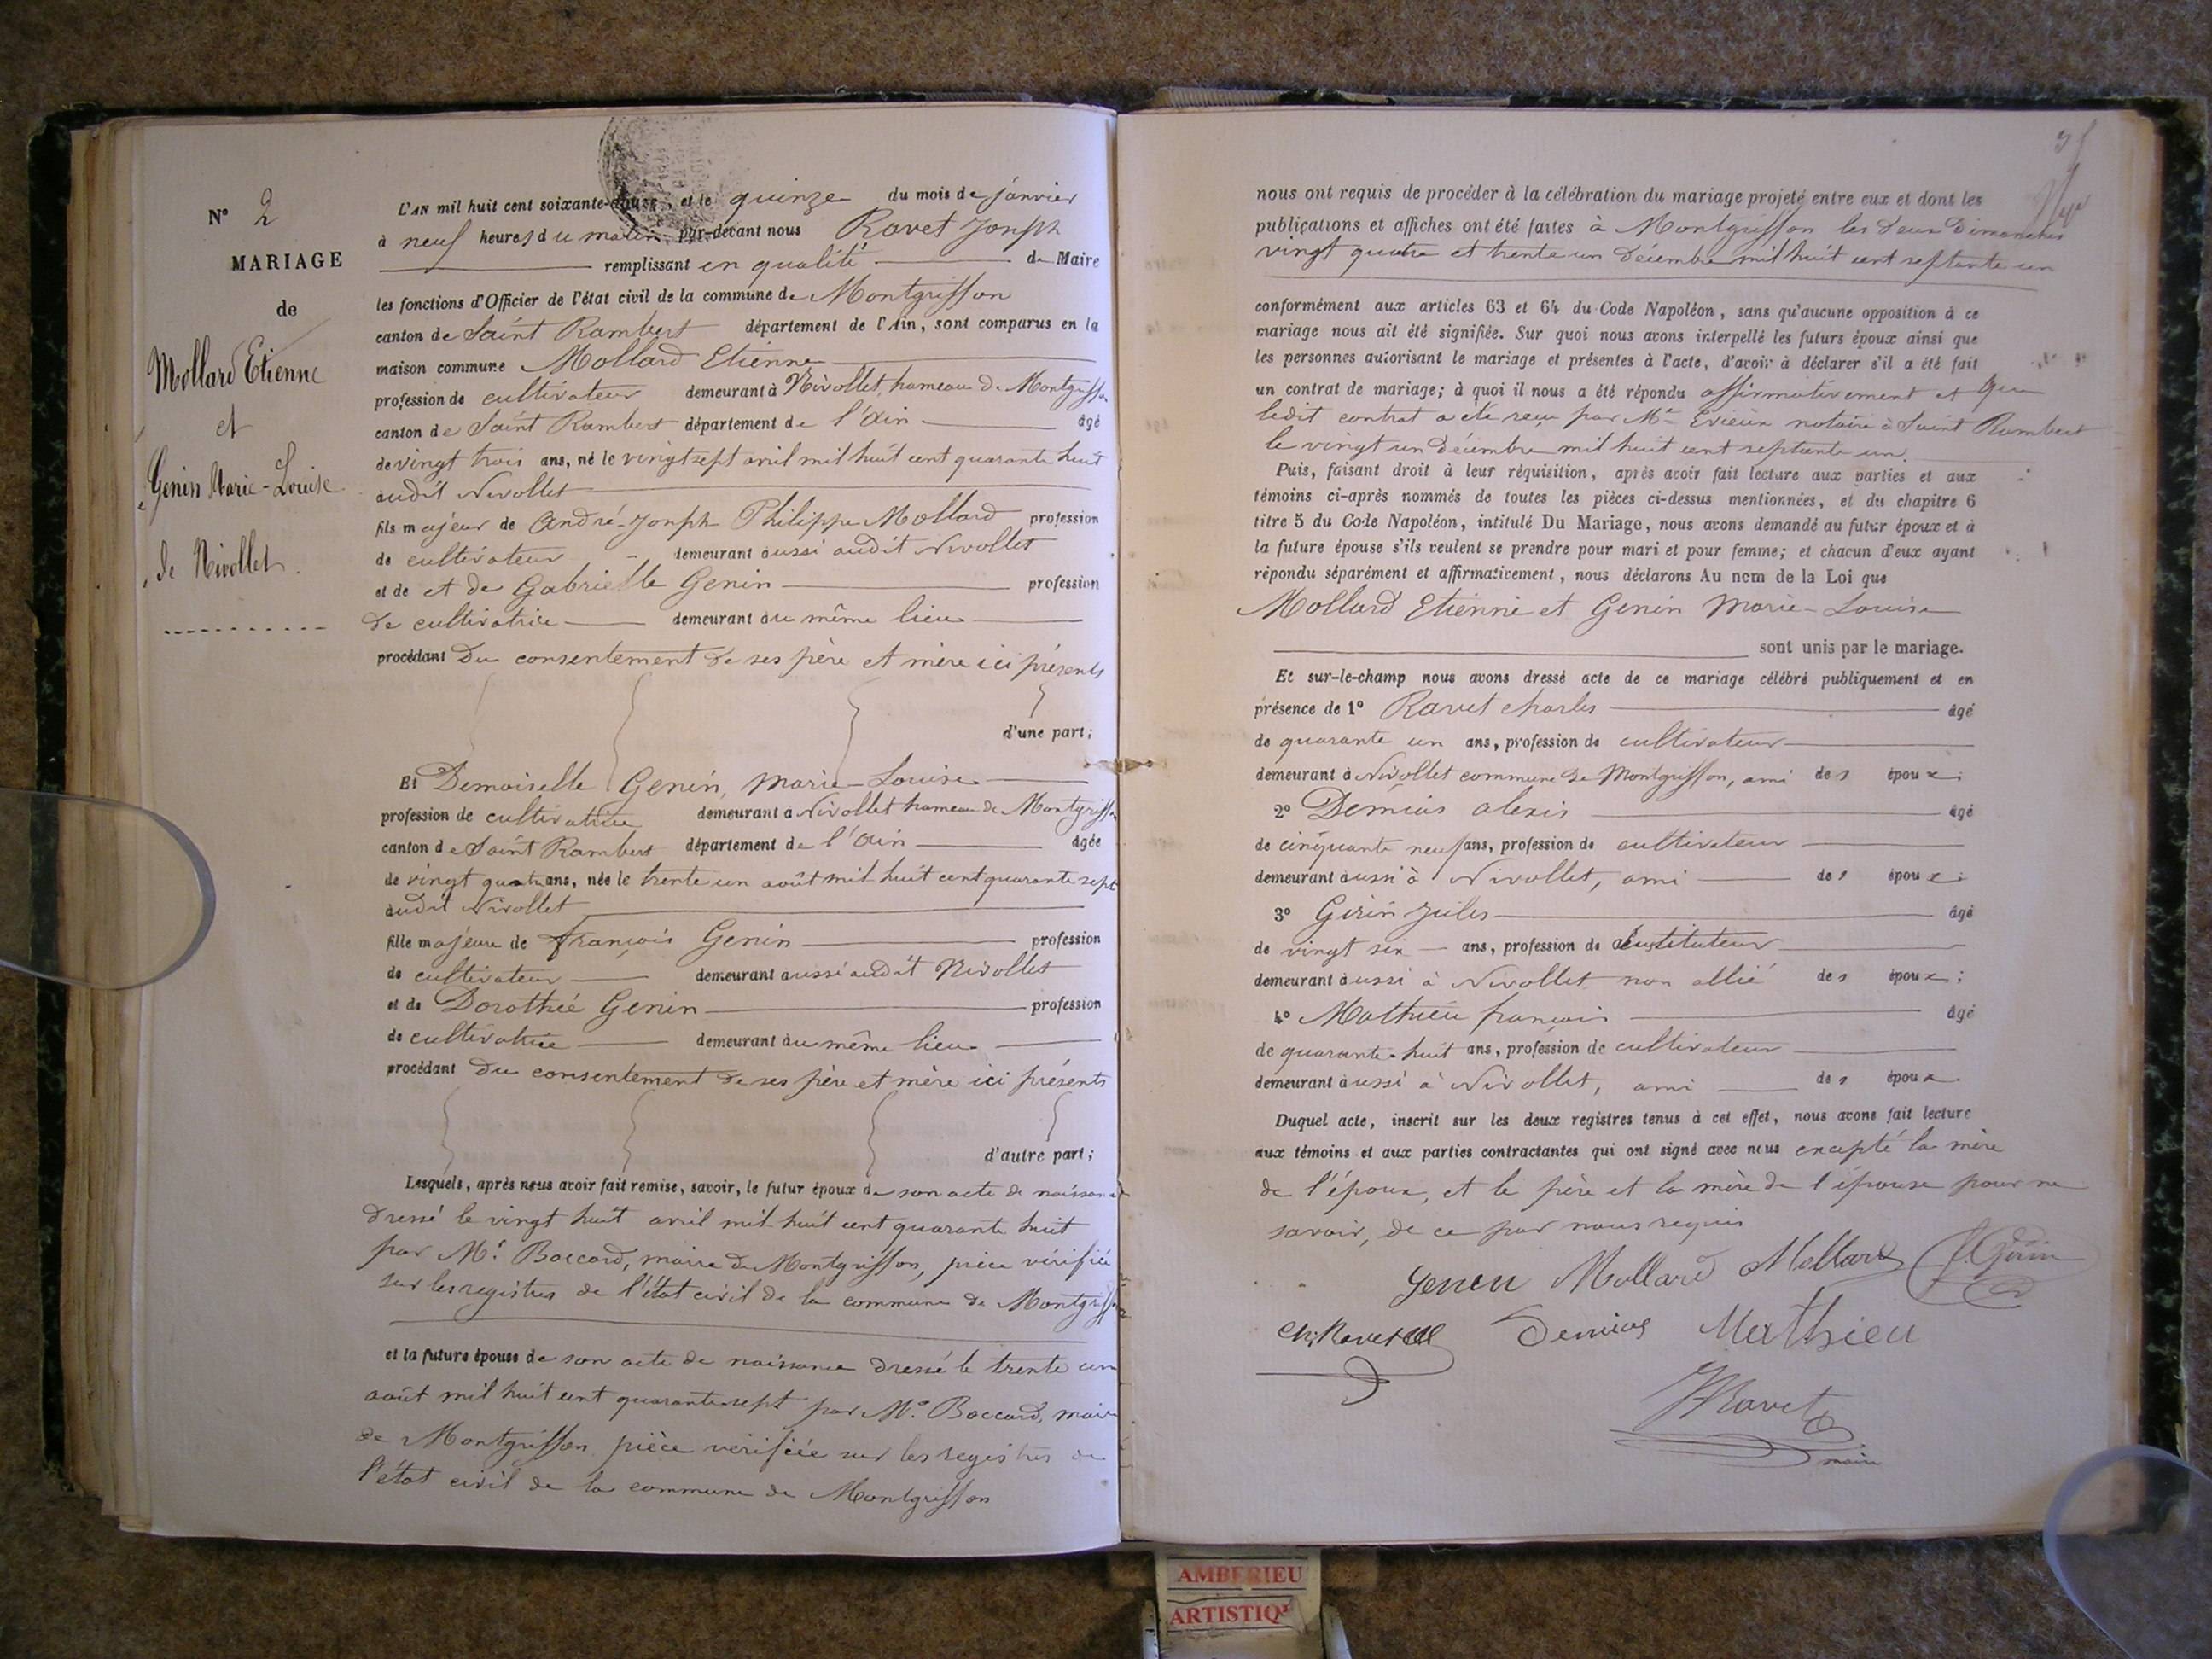 N° 2
MARIAGE
de
Mollard Etienne
et
Genin Marie-Louise
de Nivollet.
L'AN mil huit cent soixante-douze, et le quinze du mois de janvier
à neuf heures du matin par-devant nous Ravet Joseph
remplissant en qualité de Maire
les fonctions d'Officier de l'état civil de la commune de Montgriffon
canton de Saint Rambert département de l'Ain, sont comparus en la
maison commune Mollard Etienne
profession de cultivateur demeurant à Nivollet, hameau de Montgriffon
canton de Saint Rambert département de l'Ain âgé
de vingt trois ans, né le vingt sept avril mil huit cent quarante huit
audit Nivollet
fils majeur de André-Joseph Philippe Mollard profession
de cultivateur demeurant aussi audit Nivollet
et de et de Gabrielle Genin profession
de cultivatrice demeurant au même lieu
procédant du consentement de ses père et mère ici présents
d'une part;
Et Demoiselle Genin, Marie-Louise
profession de cultivatrice demeurant à Nivollet hameau de Montgriffon
canton de Saint Rambert département de l'Ain âgée
de vingt quatre ans, née le trente un août mil huit cent quarante sept
audit Nivollet
fille majeure de françois Genin profession
de cultivateur demeurant aussi audit Nivollet
et de Dorothée Genin profession
de cultivatrice demeurant au même lieu
procédant du consentement de ses père et mère ici présents
d'autre part;
Lesquels, après nous avoir fait remise, savoir, le futur époux de son acte de naissance
dressé le vingt huit avril mil huit cent quarante huit
par Mr. Boccard, maire de Montgriffon, pièce vérifiée
sur les registres de l'état civil de la commune de Montgriffon
et la future épouse de son acte de naissance dressé le trente un
août mil huit cent quarante sept par Mr. Boccard, maire
de Montgriffon pièce vérifiée sur les registres de
l'état civil de la commune de Montgriffon
nous ont requis de procéder à la célébration du mariage projeté entre eux et dont les
publications et affiches ont été faites à Montgriffon les deux Dimanches
vingt quatre et trente un Décembre mil huit cent septante un
conformément aux articles 63 et 64 du Code Napoléon, sans qu'aucune opposition à ce
mariage nous ait été signifiée. Sur quoi nous avons interpellé les futurs époux ainsi que
les personnes autorisant le mariage et présentes à l'acte, d'avoir à déclarer s'il a été fait
un contrat de mariage; à quoi il nous a été répondu affirmativement et que
ledit contrat a été reçu par Me Evieux notaire à Saint Rambert
le vingt un Décembre mil huit cent septante un.
Puis, faisant droit à leur réquisition, après avoir fait lecture aux parties et aux
témoins ci-après nommés de toutes les pièces ci-dessus mentionnées, et du chapitre 6
titre 5 du Code Napoléon, intitulé Du Mariage, nous avons demandé au futur époux et à
la future épouse s'ils veulent se prendre pour mari et pour femme; et chacun d'eux ayant
répondu séparément et affirmativement, nous déclarons Au nom de la Loi que
Mollard Etienne et Genin Marie-Louise
sont unis par le mariage.
Et sur-le-champ nous avons dressé acte de ce mariage célébré publiquement et en
présence de 1° Ravet charles âgé
de quarante un ans, profession de cultivateur
demeurant à Nivollet commune de Montgriffon, ami des époux;
2° Demias alexis âgé
de cinquante neuf ans, profession de cultivateur
demeurant aussi à Nivollet, ami des époux;
3° Girin Jules âgé
de vingt six ans, profession de Instituteur
demeurant aussi à Nivollet non allié des époux;
4° Mathieu françois âgé
de quarante-huit ans, profession de cultivateur
demeurant aussi à Nivollet, ami des époux
Duquel acte, inscrit sur les deux registres tenus à cet effet, nous avons fait lecture
aux témoins et aux parties contractantes qui ont signé avec nous excepté la mère
de l'époux, et le père et la mère de l'épouse pour ne
savoir, de ce par nous requis
Genin Mollard Mollard J. Girin
Ch. Ravet Demias Mathieu
J Ravet
maire
AMBERIEU
ARTISTIQ